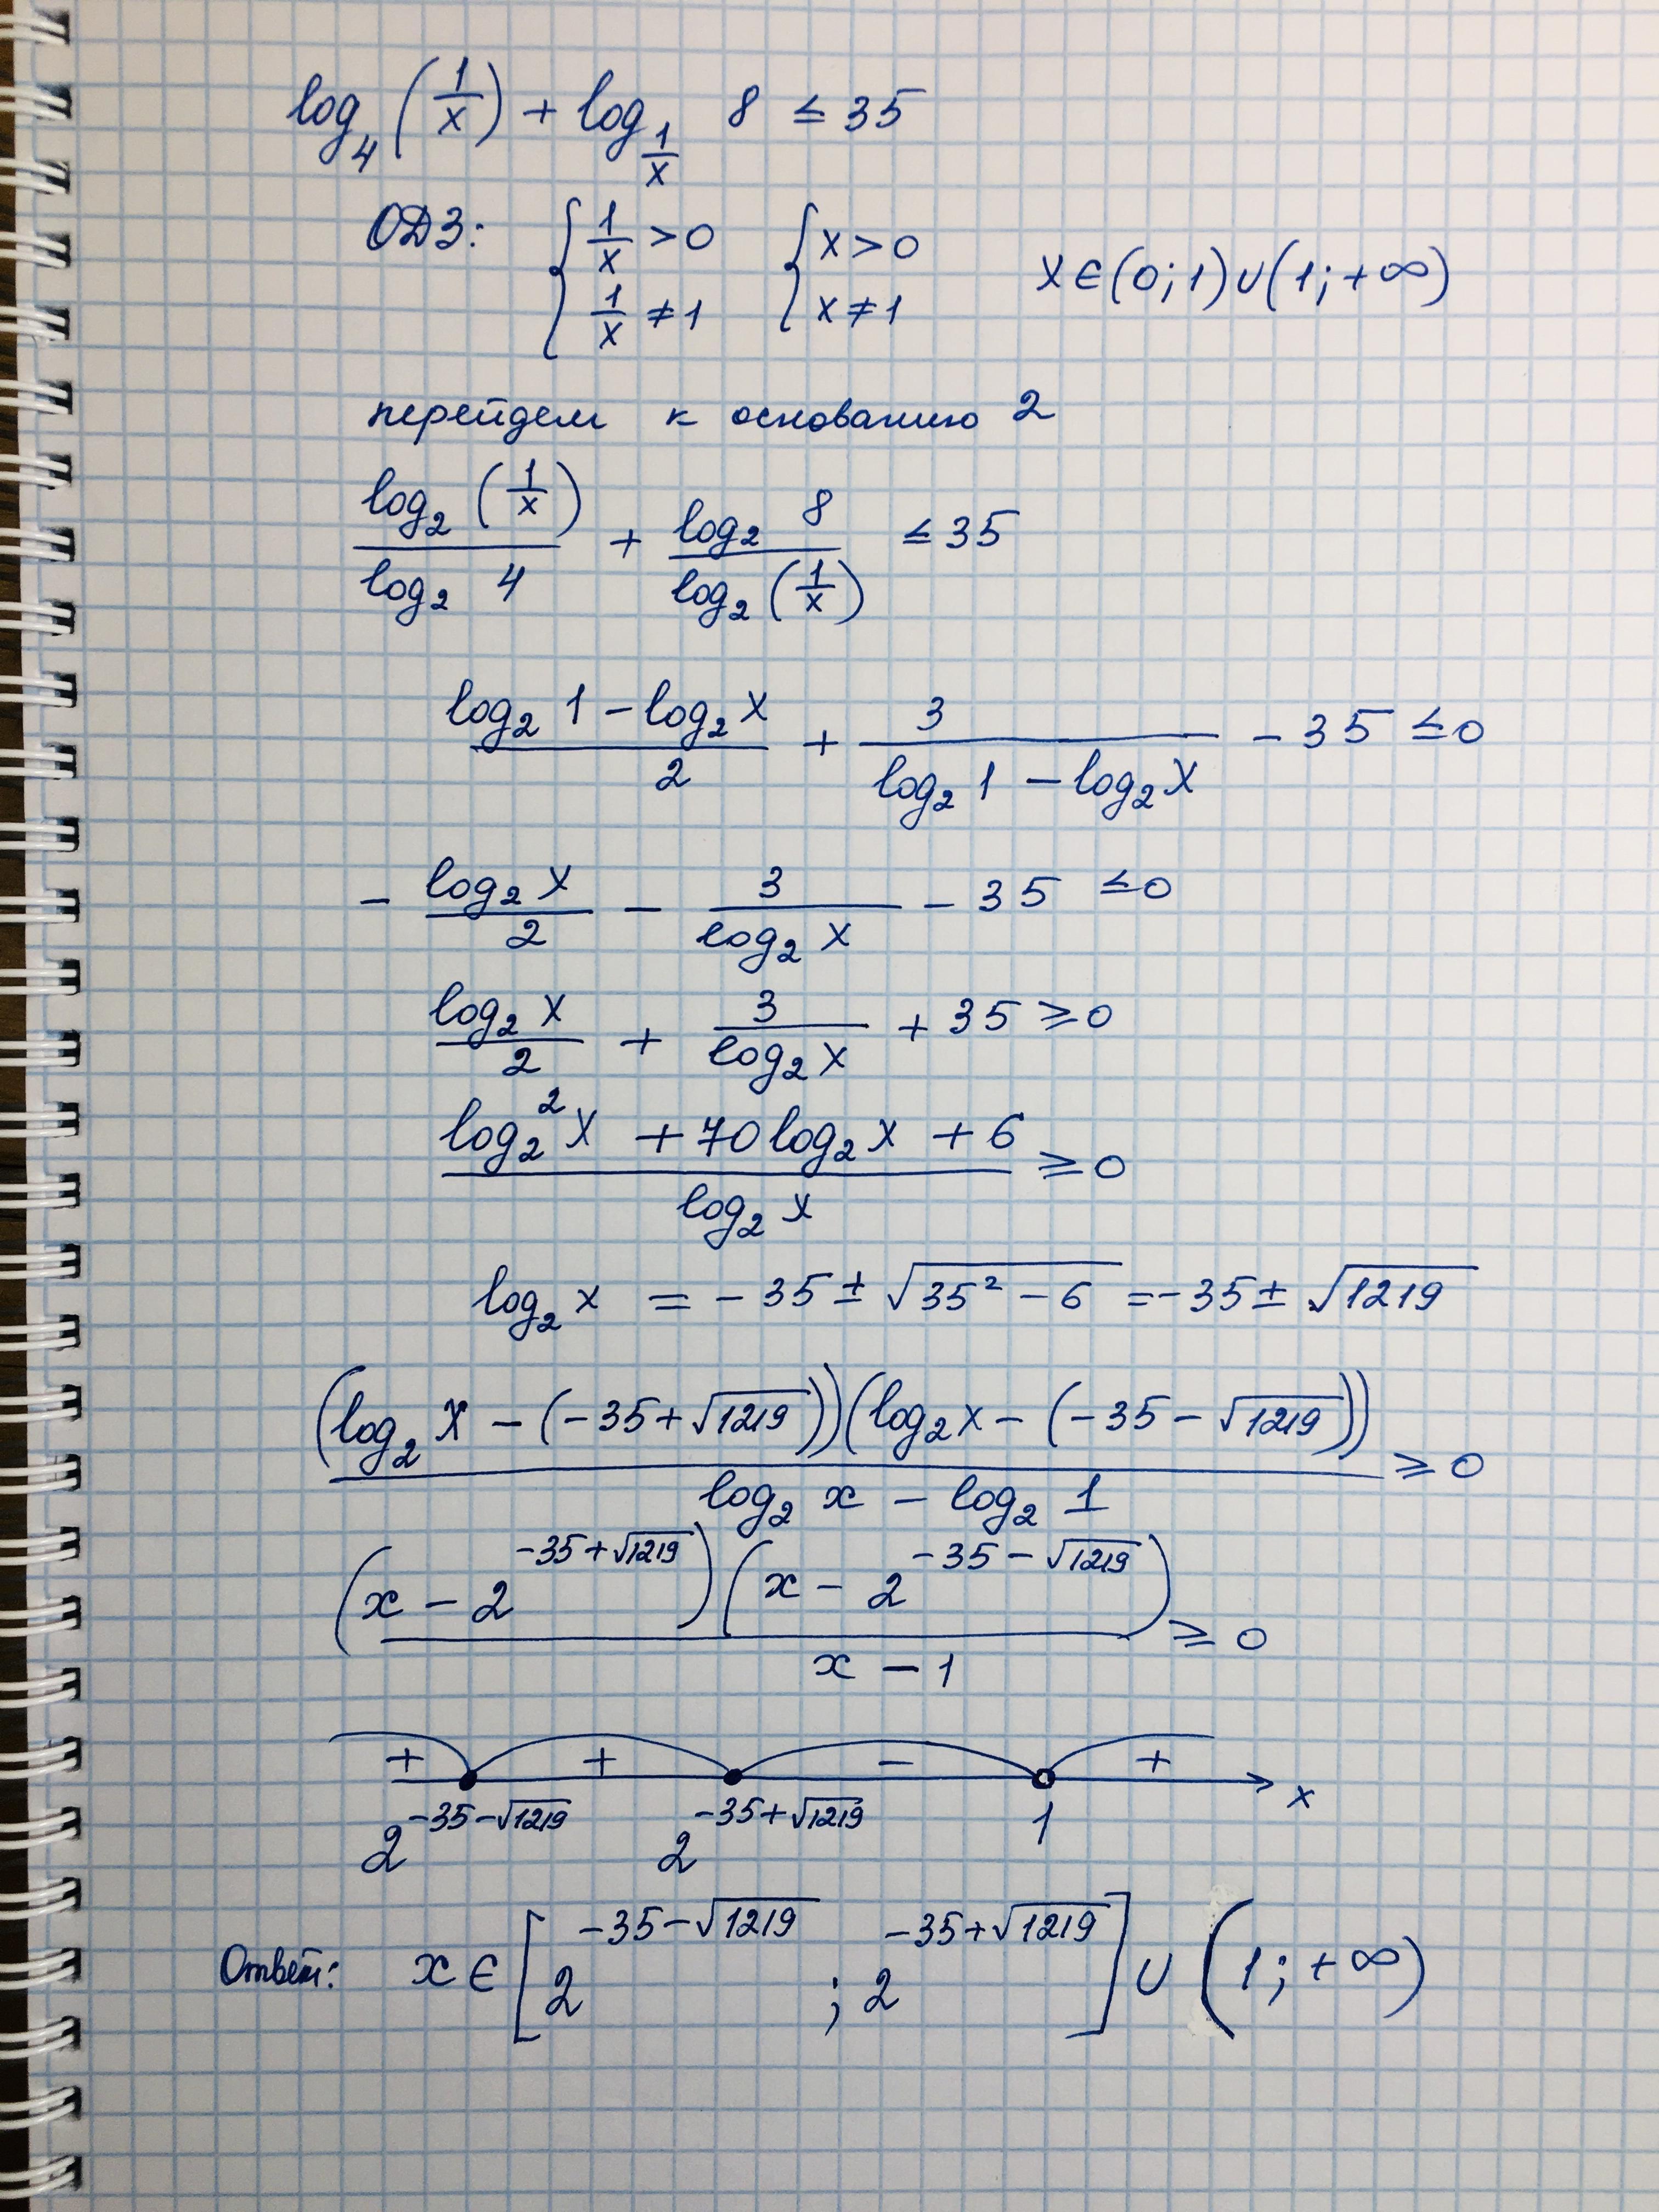 log₄(1/x) + log_{1/x} 8 ≤ 35
ОДЗ: { 1/x > 0 ; 1/x ≠ 1 { x > 0 ; x ≠ 1 x ∈ (0; 1) ∪ (1; +∞)
перейдем к основанию 2
log₂(1/x) / log₂ 4 + log₂ 8 / log₂(1/x) ≤ 35
(log₂ 1 − log₂ x) / 2 + 3 / (log₂ 1 − log₂ x) − 35 ≤ 0
− log₂ x / 2 − 3 / log₂ x − 35 ≤ 0
log₂ x / 2 + 3 / log₂ x + 35 ≥ 0
(log₂² x + 70 log₂ x + 6) / log₂ x ≥ 0
log₂ x = −35 ± √(35² − 6) = −35 ± √1219
(log₂ x − (−35 + √1219))(log₂ x − (−35 − √1219)) / (log₂ x − log₂ 1) ≥ 0
(x − 2^{−35+√1219})(x − 2^{−35−√1219}) / (x − 1) ≥ 0
+ + − +
2^{−35−√1219} 2^{−35+√1219} 1 x
Ответ: x ∈ [2^{−35−√1219}; 2^{−35+√1219}] ∪ (1; +∞)